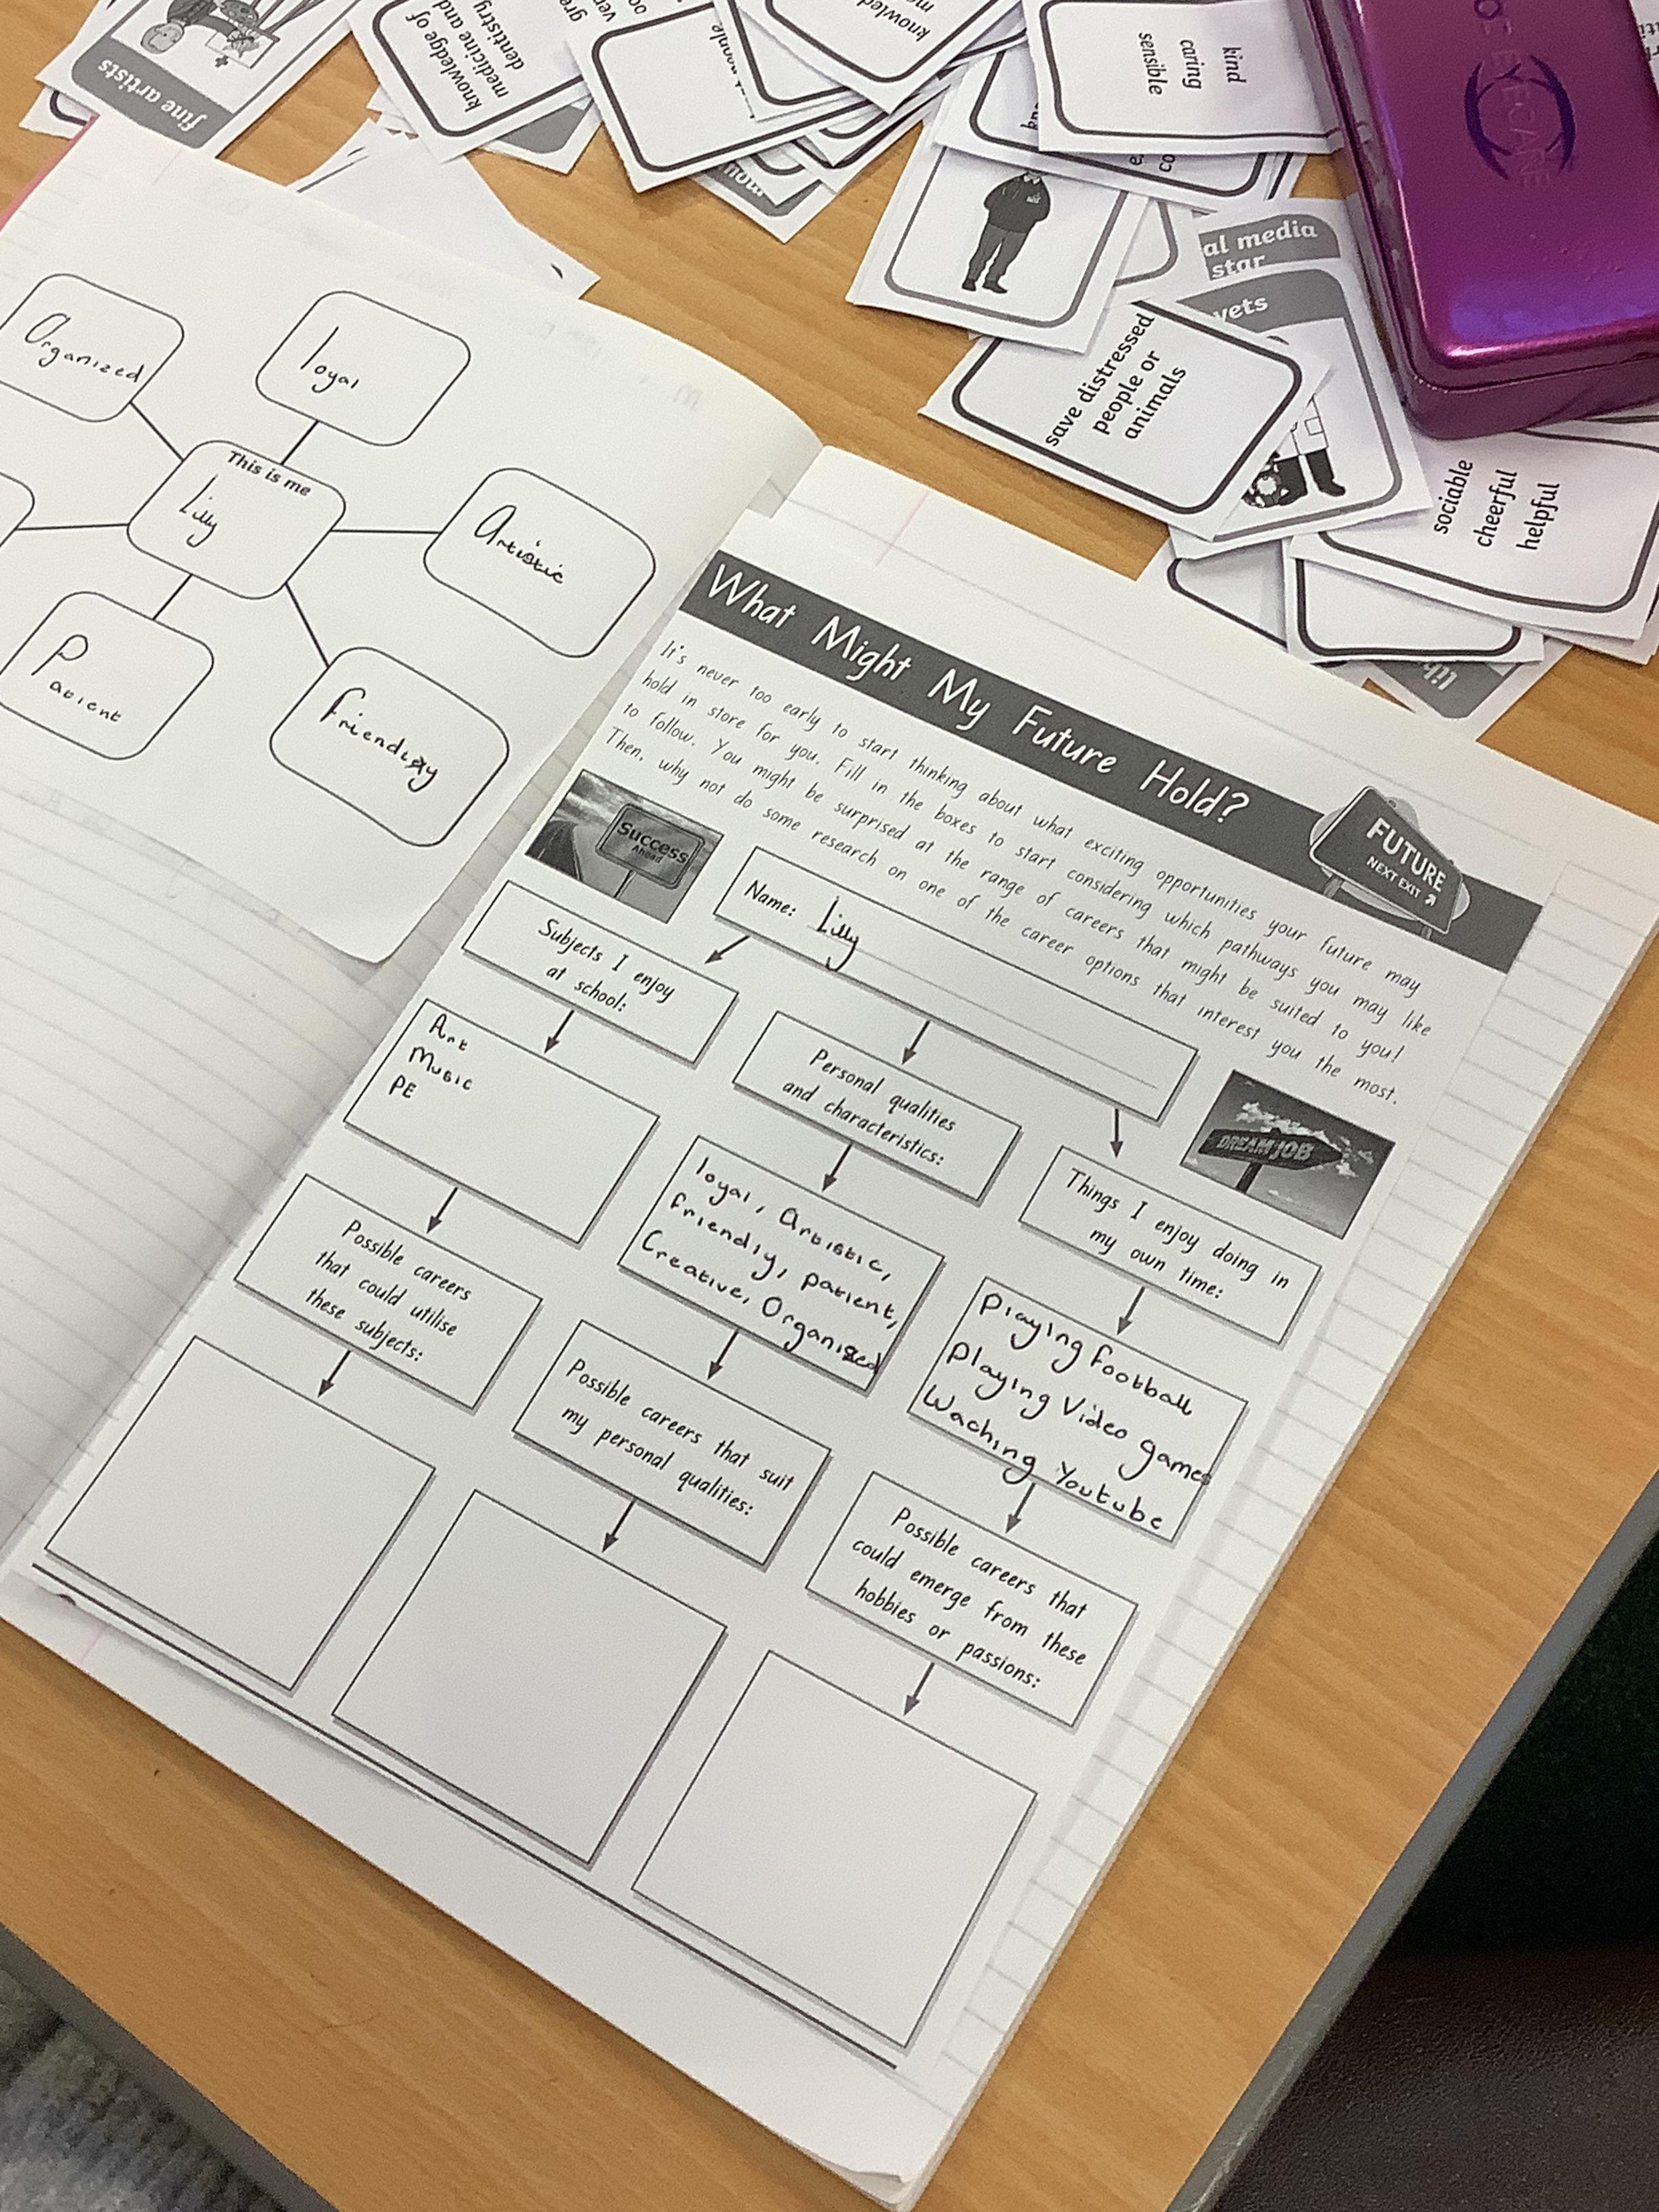 fine artists
knowledge of
medicine and
dentistry
knowled
kind
caring
sensible
EYECARE
al media
star
vets
save distressed
people or
animals
sociable
cheerful
helpful
Organized
loyal
This is me
Lilly
Artistic
Patient
friendly
What Might My Future Hold?
It's never too early to start thinking about what exciting opportunities your future may
hold in store for you. Fill in the boxes to start considering which pathways you may like
to follow. You might be surprised at the range of careers that might be suited to you!
Then, why not do some research on one of the career options that interest you the most.
FUTURE
NEXT EXIT
Success
Ahead
Name: Lilly
DREAM JOB
Subjects I enjoy
at school:
Art
Music
PE
Possible careers
that could utilise
these subjects:
Personal qualities
and characteristics:
loyal, Artistic,
friendly, patient,
Creative, Organized
Possible careers that suit
my personal qualities:
Things I enjoy doing in
my own time:
Playing football
Playing Video games
Waching Youtube
Possible careers that
could emerge from these
hobbies or passions: